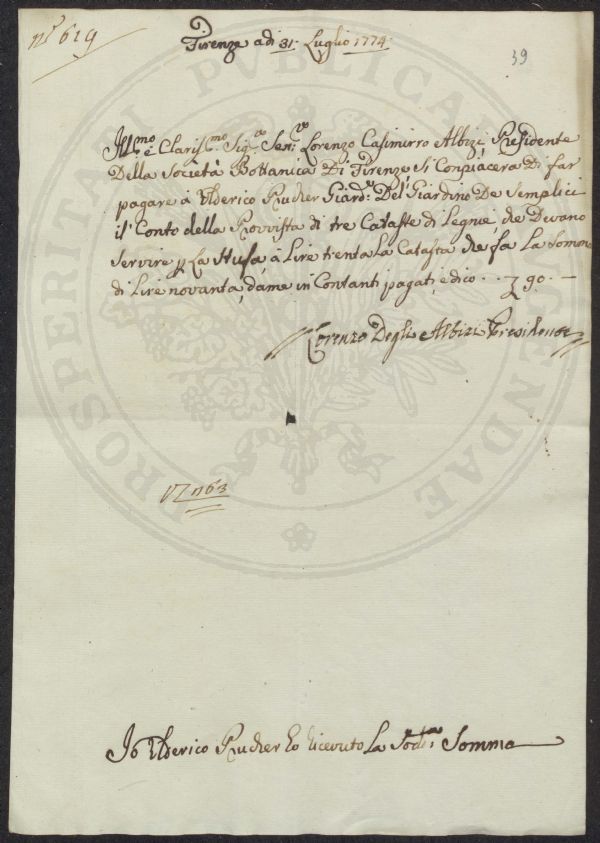 nº 619
Firenze adi 31 Luglio 1774
39
Ill.mo e Clariss.mo Sig.re Sen.re Lorenzo Casimirro Albizi Presidente
Della Società Bottanica Di Firenze, Si Conpiacera Di far
pagare á Ulderico Rucher Giard.re Del Giardino De Semplici
il Conto della Provvista di tre Cataste di Legne, che Devano
Servire p La Stufa á Lire trenta La Catasta che fa La Somma
di Lire novanta, dáme in Contanti pagati, e dico .. 90. —
Lorenzo Degli Albizi Presidente
Io Ulderico Rucher ho riceuto La Sod.a Somma
PROSPERITATI PUBLICAE AUGENDAE